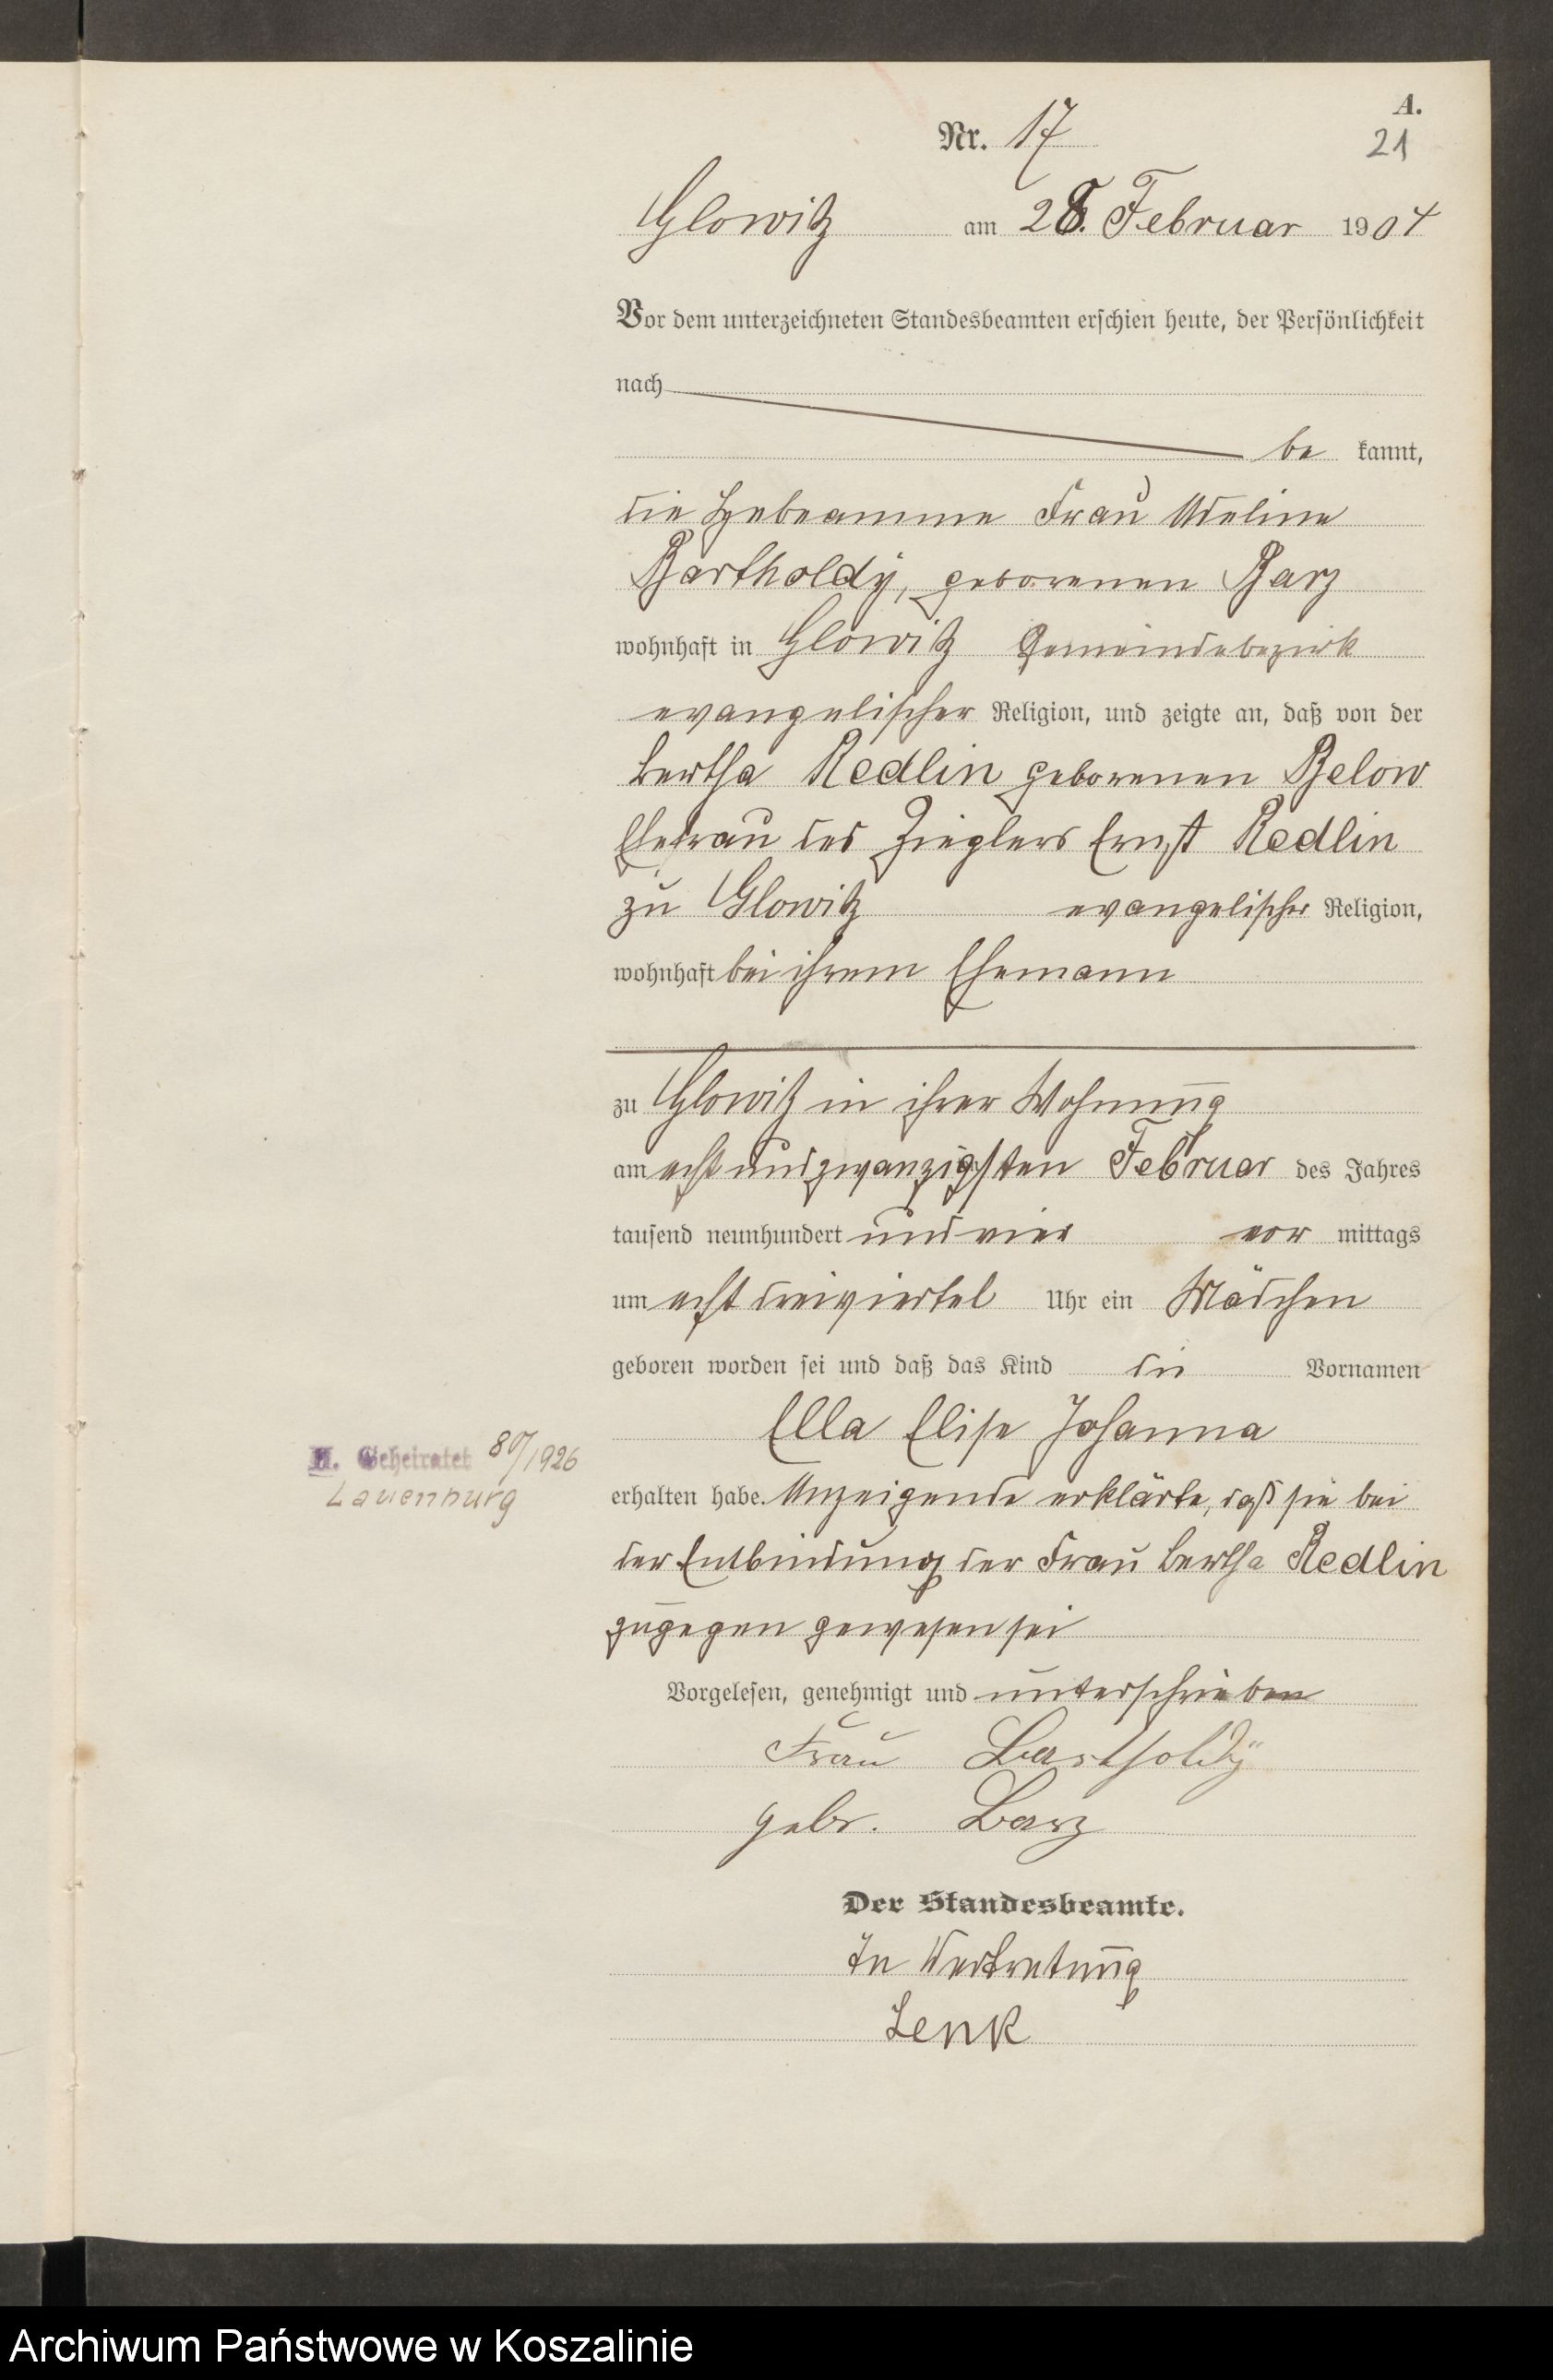 A.
Nr. 17
21
Glowitz am 28. Februar 1904
Vor dem unterzeichneten Standesbeamten erschien heute, der Persönlichkeit
nach
be kannt,
die Hebeamme Frau Adeline
Bartholdy, geborenen Barz
wohnhaft in Glowitz Gemeindebezirk
evangelischer Religion, und zeigte an, daß von der
Bertha Redlin geborenen Below
Ehefrau des Zieglers Ernst Redlin
zu Glowitz evangelischer Religion,
wohnhaft bei ihrem Ehemann
zu Glowitz in ihrer Wohnung
am acht und zwanzigsten Februar des Jahres
tausend neunhundert und vier vor mittags
um acht dreiviertel Uhr ein Mädchen
geboren worden sei und daß das Kind die Vornamen
Ella Elise Johanna
H. Geheiratet /1926
Lauenburg
erhalten habe. Anzeigende erklärte, daß sie bei
der Entbindung der Frau Bertha Redlin
zugegen gewesen sei
Vorgelesen, genehmigt und unterschrieben
Frau Bartholdÿ
gebr. Barz
Der Standesbeamte.
In Vertretung
Lenk
Archiwum Państwowe w Koszalinie